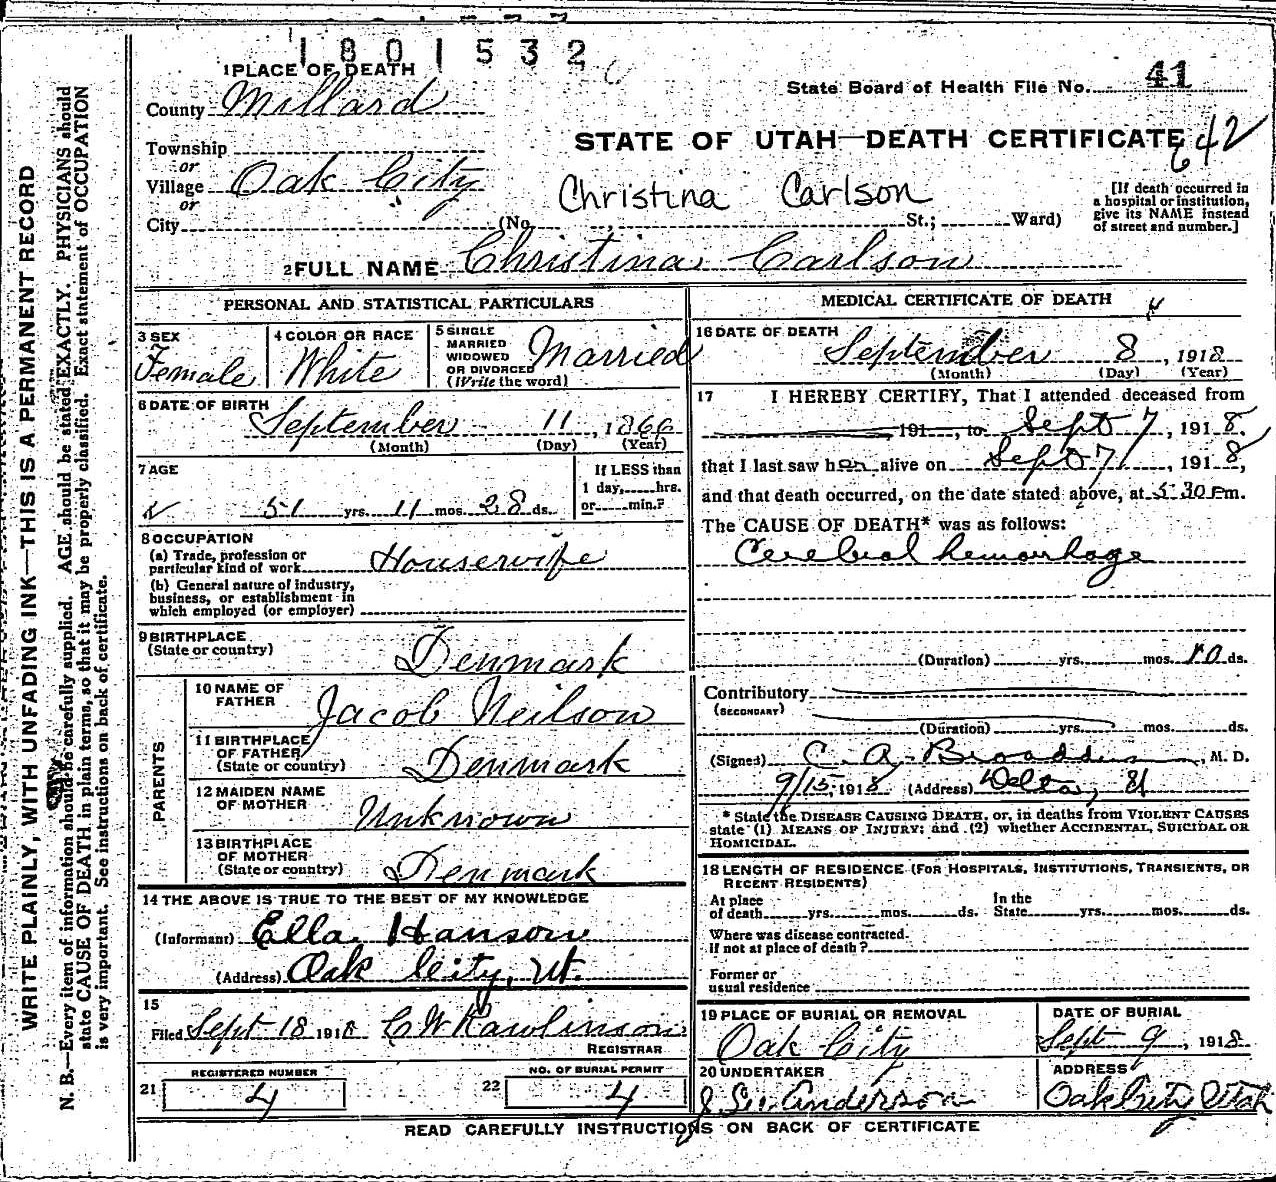 1801532
1 PLACE OF DEATH
County Millard
State Board of Health File No. 41
STATE OF UTAH—DEATH CERTIFICATE
642
Township
or
Village Oak City
or
City
Christina Carlson
(No. St.; Ward)
[If death occurred in
a hospital or institution,
give its NAME instead
of street and number.]
2 FULL NAME Christina Carlson
PERSONAL AND STATISTICAL PARTICULARS
3 SEX
Female
4 COLOR OR RACE
White
5 SINGLE
MARRIED
WIDOWED
OR DIVORCED
(Write the word)
Married
6 DATE OF BIRTH
September 11, 1866
(Month) (Day) (Year)
7 AGE
51 yrs. 11 mos. 28 ds.
If LESS than
1 day, hrs.
or min.?
8 OCCUPATION
(a) Trade, profession or
particular kind of work Housewife
(b) General nature of industry,
business, or establishment in
which employed (or employer)
9 BIRTHPLACE
(State or country)
Denmark
PARENTS
10 NAME OF
FATHER
Jacob Neilson
11 BIRTHPLACE
OF FATHER
(State or country)
Denmark
12 MAIDEN NAME
OF MOTHER
Unknown
13 BIRTHPLACE
OF MOTHER
(State or country)
Denmark
14 THE ABOVE IS TRUE TO THE BEST OF MY KNOWLEDGE
(Informant) Ella Hanson
(Address) Oak City, Ut.
15
Filed Sept 18 1918 C W Rawlinson
REGISTRAR
21
REGISTERED NUMBER
4
22
NO. OF BURIAL PERMIT
4
MEDICAL CERTIFICATE OF DEATH
16 DATE OF DEATH
September 8, 1918
(Month) (Day) (Year)
17 I HEREBY CERTIFY, That I attended deceased from
191, to Sept 7, 1918,
that I last saw her alive on Sept 7, 1918,
and that death occurred, on the date stated above, at 5:30 Pm.
The CAUSE OF DEATH* was as follows:
Cerebral hemorrhage
(Duration) yrs. mos. 10 ds.
Contributory
(SECONDARY)
(Duration) yrs. mos. ds.
(Signed) C. A. Broaddus, M. D.
9/15, 1918 (Address) Delta, U
* State the DISEASE CAUSING DEATH, or, in deaths from VIOLENT CAUSES
state (1) MEANS OF INJURY; and (2) whether ACCIDENTAL, SUICIDAL OR
HOMICIDAL.
18 LENGTH OF RESIDENCE (FOR HOSPITALS, INSTITUTIONS, TRANSIENTS, OR
RECENT RESIDENTS)
At place
of death yrs. mos. ds.
In the
State yrs. mos. ds.
Where was disease contracted.
If not at place of death?
Former or
usual residence
19 PLACE OF BURIAL OR REMOVAL
Oak City
DATE OF BURIAL
Sept 9, 1918
20 UNDERTAKER
Anderson
ADDRESS
Oak City Utah
READ CAREFULLY INSTRUCTIONS ON BACK OF CERTIFICATE
WRITE PLAINLY, WITH UNFADING INK—THIS IS A PERMANENT RECORD
N. B.—Every item of information should be carefully supplied. AGE should be stated EXACTLY. PHYSICIANS should
state CAUSE OF DEATH in plain terms, so that it may be properly classified. Exact statement of OCCUPATION
is very important. See instructions on back of certificate.